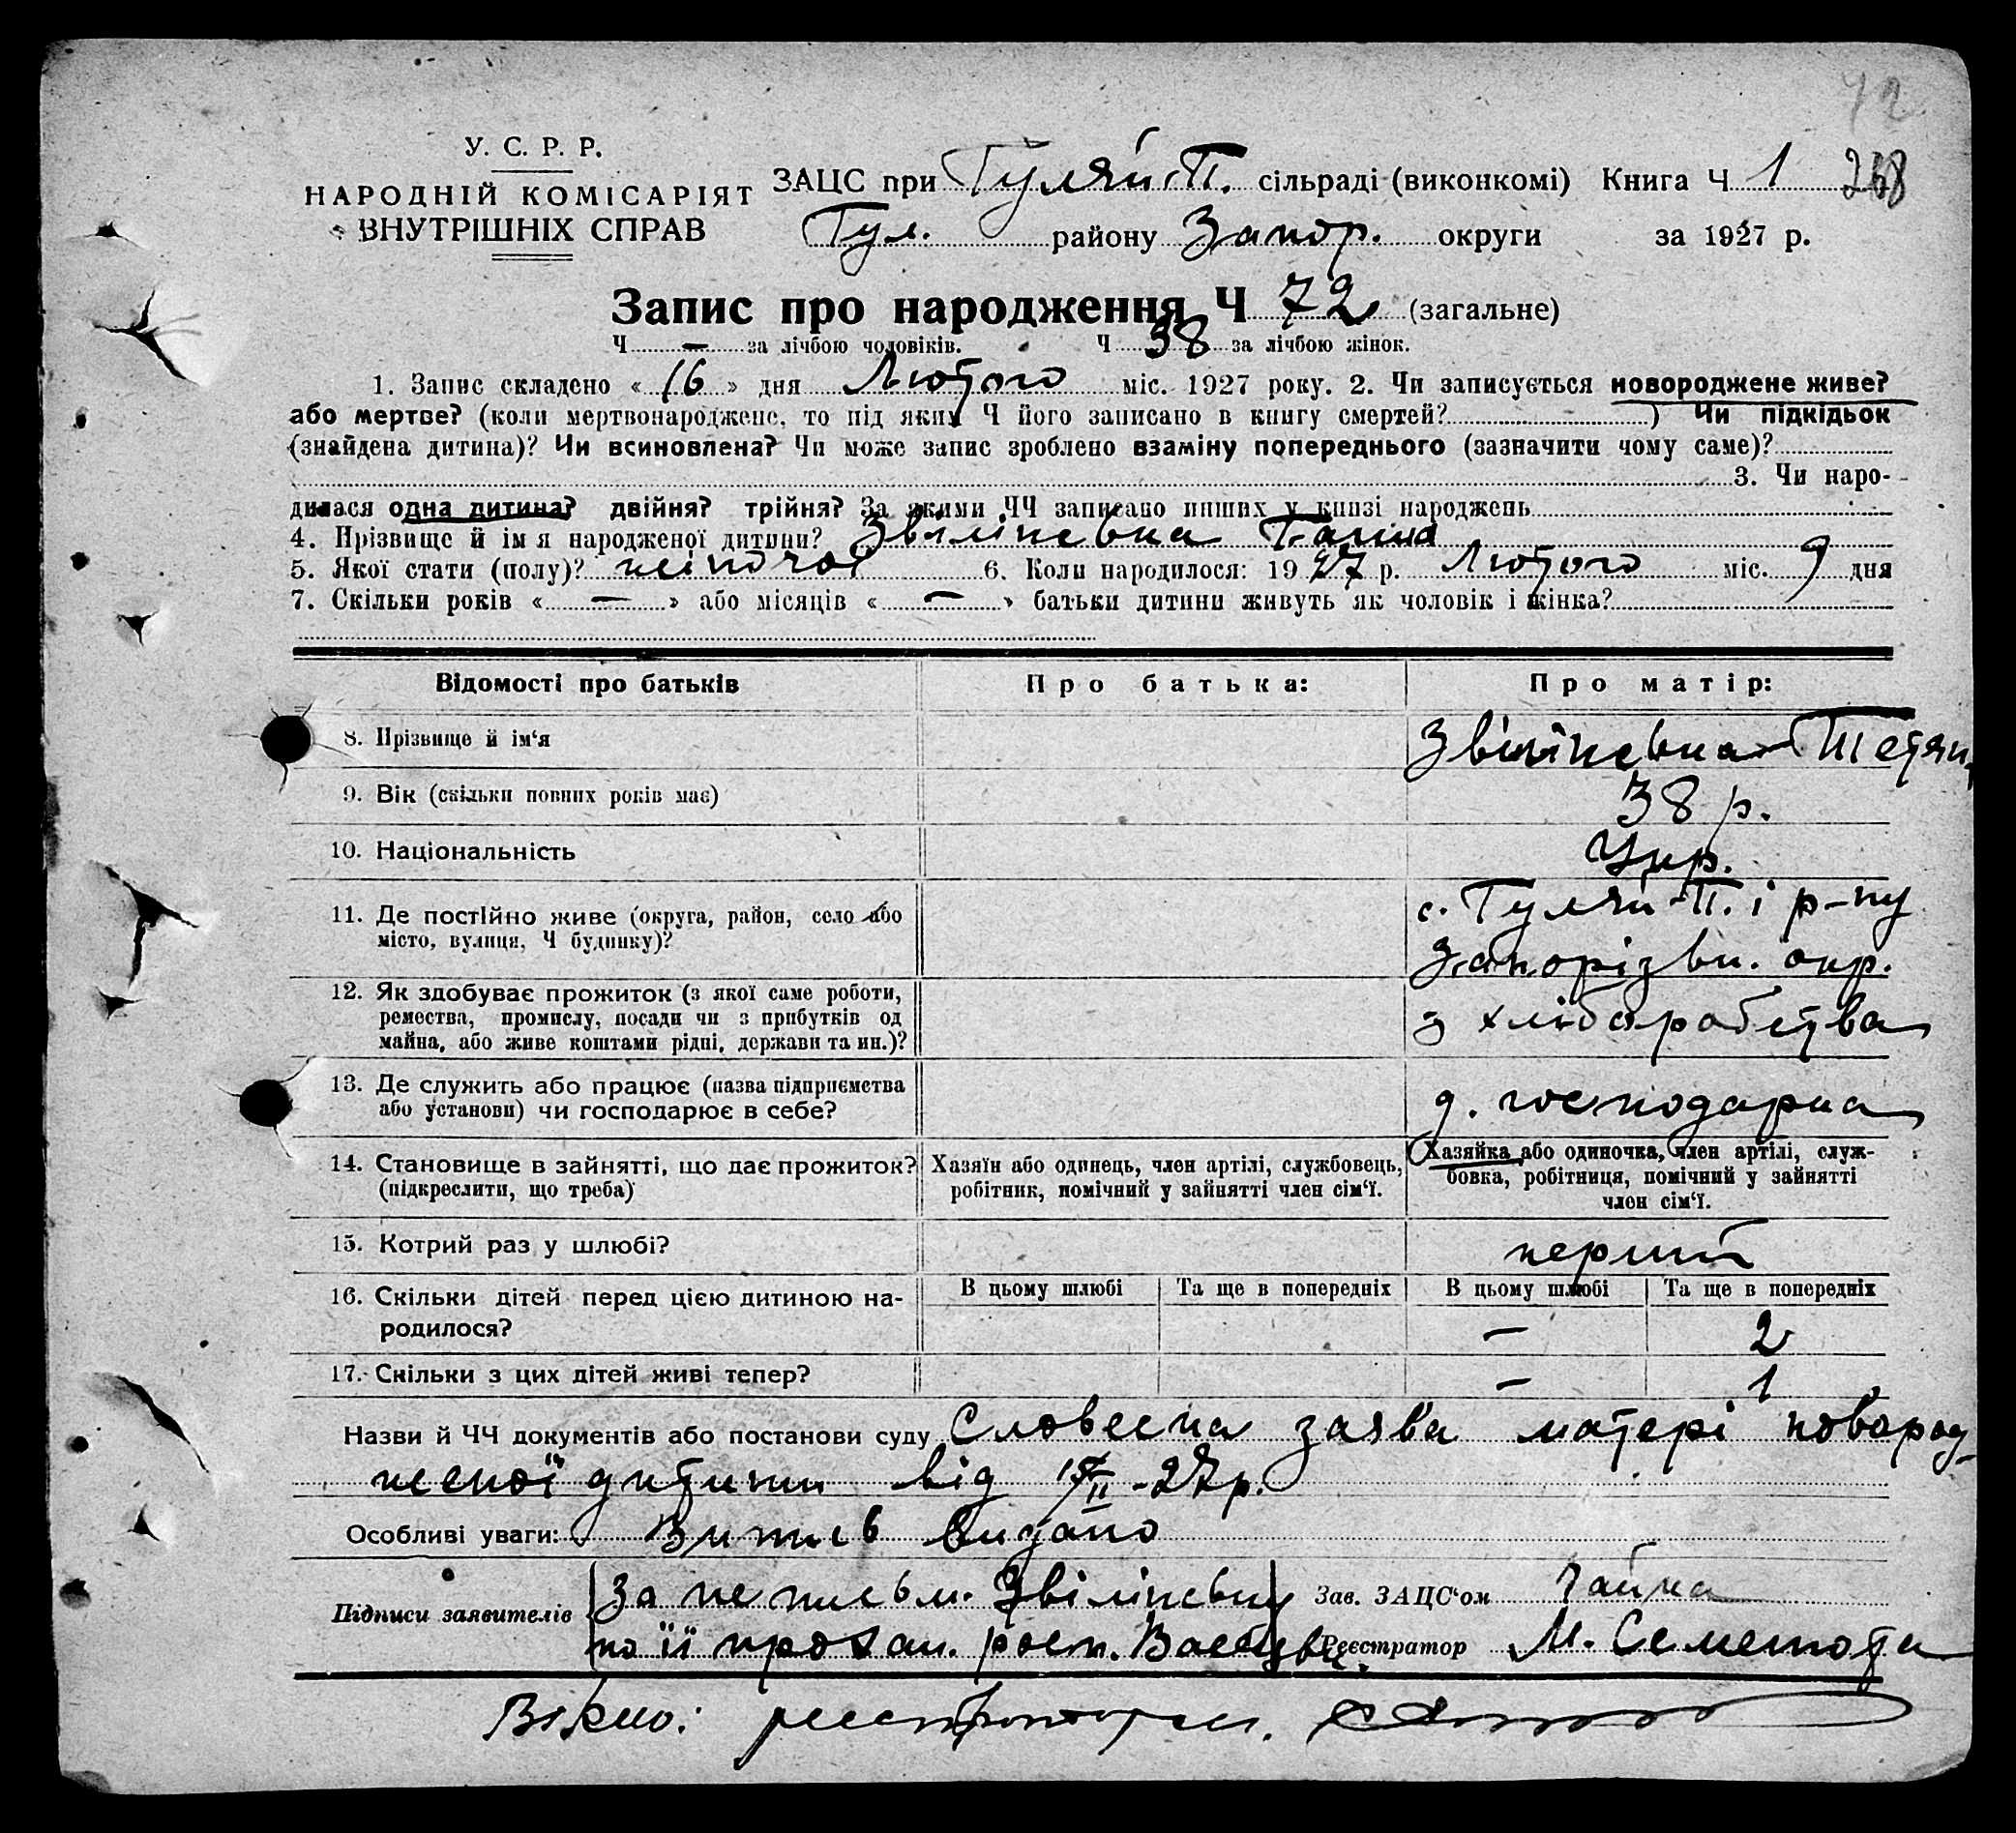 72
У. С. Р. Р.
НАРОДНІЙ КОМІСАРІЯТ
ВНУТРІШНІХ СПРАВ
ЗАЦС при Гуляй-П. сільраді (виконкомі) Книга Ч 1 268
Гул. району Запор. округи за 1927 р.
Запис про народження Ч 72 (загальне)
Ч — за лічбою чоловіків. Ч 38 за лічбою жінок.
1. Запис складено « 16 » дня Лютого міс. 1927 року. 2. Чи записується новороджене живе?
або мертве? (коли мертвонароджене, то під яким Ч його записано в книгу смертей? ) Чи підкідьок
(знайдена дитина)? Чи всиновлена? Чи може запис зроблено взаміну попереднього (зазначити чому саме)?
3. Чи наро-
дилася одна дитина? двійня? трійня? За якими ЧЧ записано инших у книзі народжень
4. Прізвище й ім я народженої дитини? Звілінська Ганна
5. Якої стати (полу)? жіночої 6. Коли народилося: 1927 р. Лютого міс. 9 дня
7. Скільки років « — » або місяців « — » батьки дитини живуть як чоловік і жінка?
Відомості про батьків Про батька: Про матір:
8. Прізвище й ім‘я Звілінська Тетян
9. Вік (скільки повних років має) 38 р.
10. Національність Укр.
11. Де постійно живе (округа, район, село або с. Гуляй-П. і р-ну
місто, вулиця, Ч будинку)? Запорізьк. окр.
12. Як здобуває прожиток (з якої саме роботи, з хліборобства
ремества, промислу, посади чи з прибутків од
майна, або живе коштами рідні, держави та ин.)?
13. Де служить або працює (назва підприємства
або установи) чи господарює в себе? д. господарка
14. Становище в зайнятті, що дає прожиток? Хазяїн або одинець, член артілі, службовець, Хазяйка або одиночка, член артілі, служ-
(підкреслити, що треба) робітник, помічний у зайнятті член сім‘ї. бовка, робітниця, помічний у зайнятті
член сім‘ї.
15. Котрий раз у шлюбі? перший
16. Скільки дітей перед цією дитиною на- В цьому шлюбі Та ще в попередніх В цьому шлюбі Та ще в попередніх
родилося? — 2
17. Скільки з цих дітей живі тепер? — 1
Назви й ЧЧ документів або постанови суду Словесна заява матері новород-
женої дитини від 15/II-27р.
Особливі уваги: Витись видано
Підписи заявителів За неписьм. Звілінську Зав. ЗАЦС‘ом Гайка
по її прохан. розп. Реєстратор М.
Вірно: